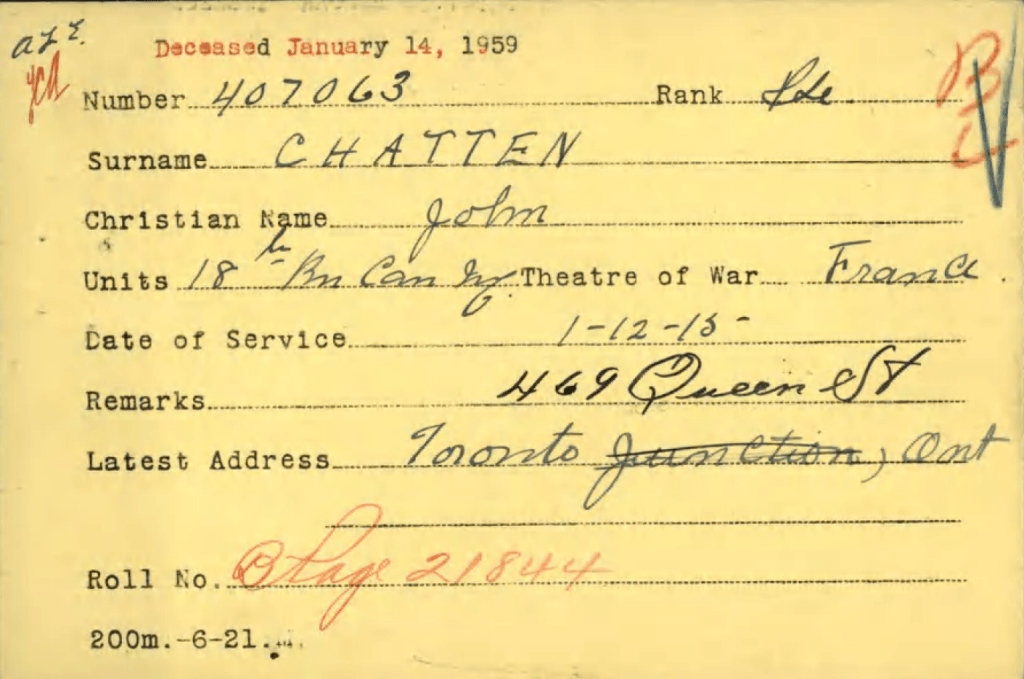 Deceased January 14, 1959
Number 407063 Rank Pte
Surname CHATTEN
Christian Name John
Units 18th Bn Can Inf Theatre of War France
Date of Service 1-12-15-
Remarks 469 Queen St
Latest Address Toronto Junction, Ont
Roll No. B Page 21844
200m.-6-21.